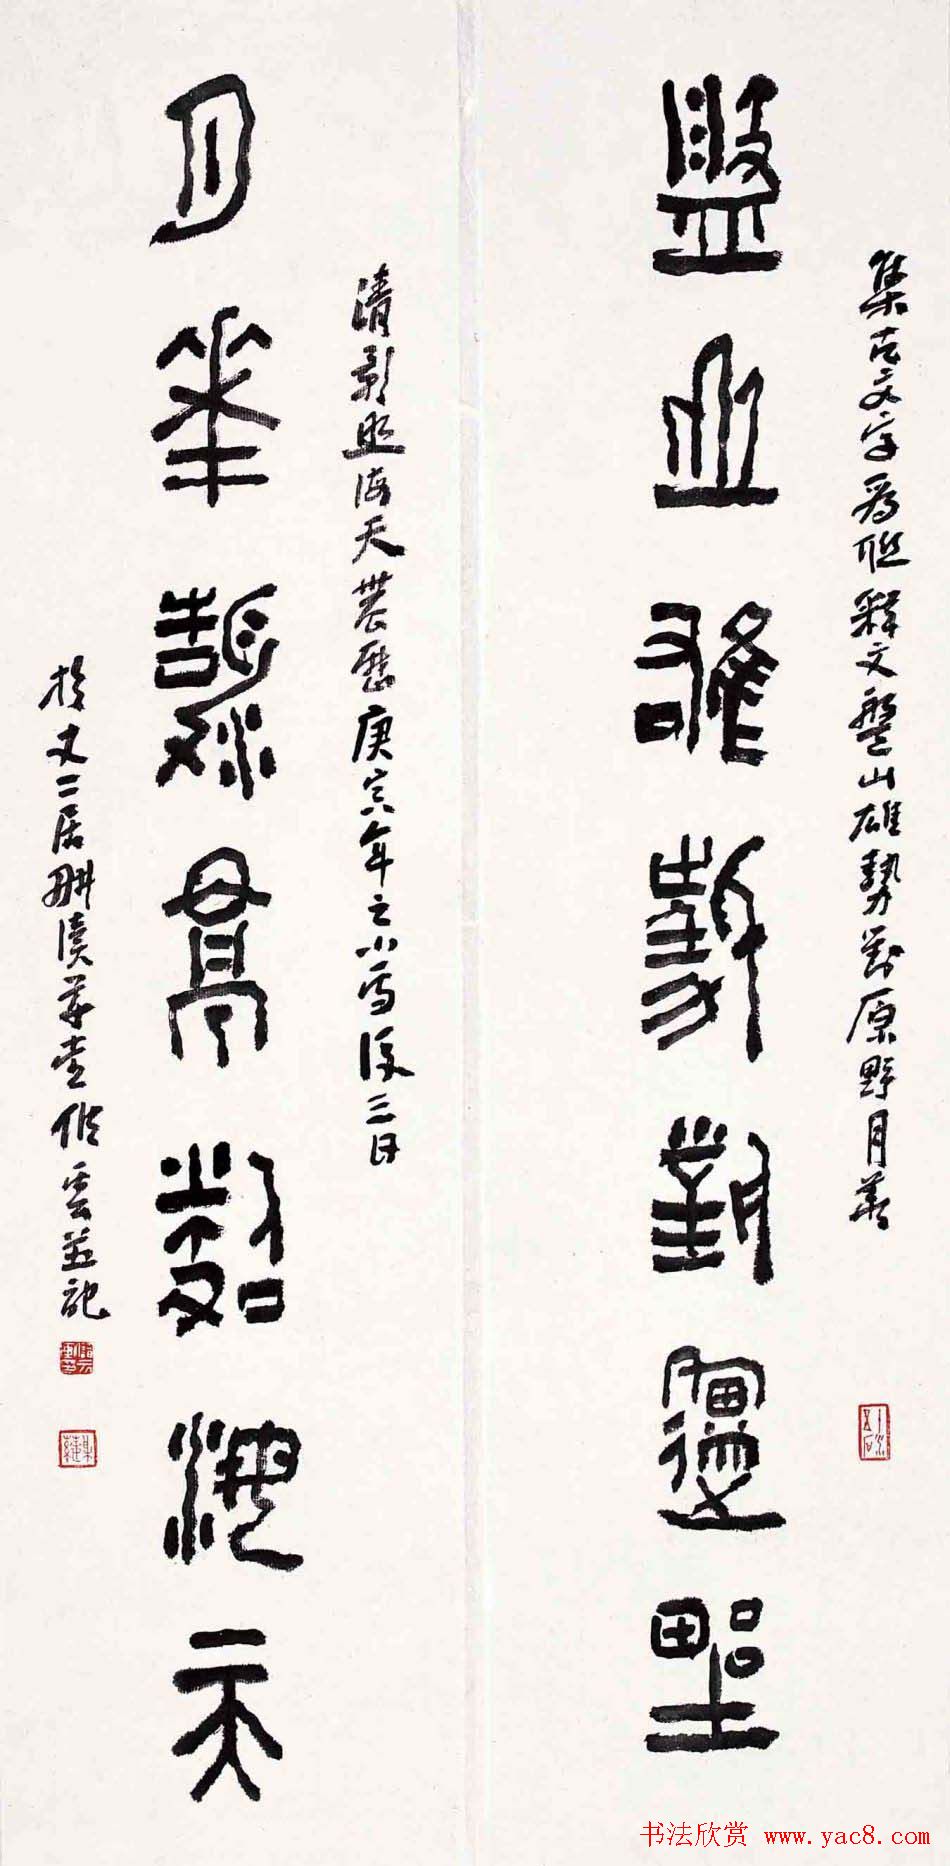 集古文字為聯釋文盤山雄勢對原野月華
盤山雄勢對邍野
清影照海天農曆庚寅年之小雪後三日
月華清影照海天
於丈二居畊讀草堂雲並記
书法欣赏 www.yac8.com